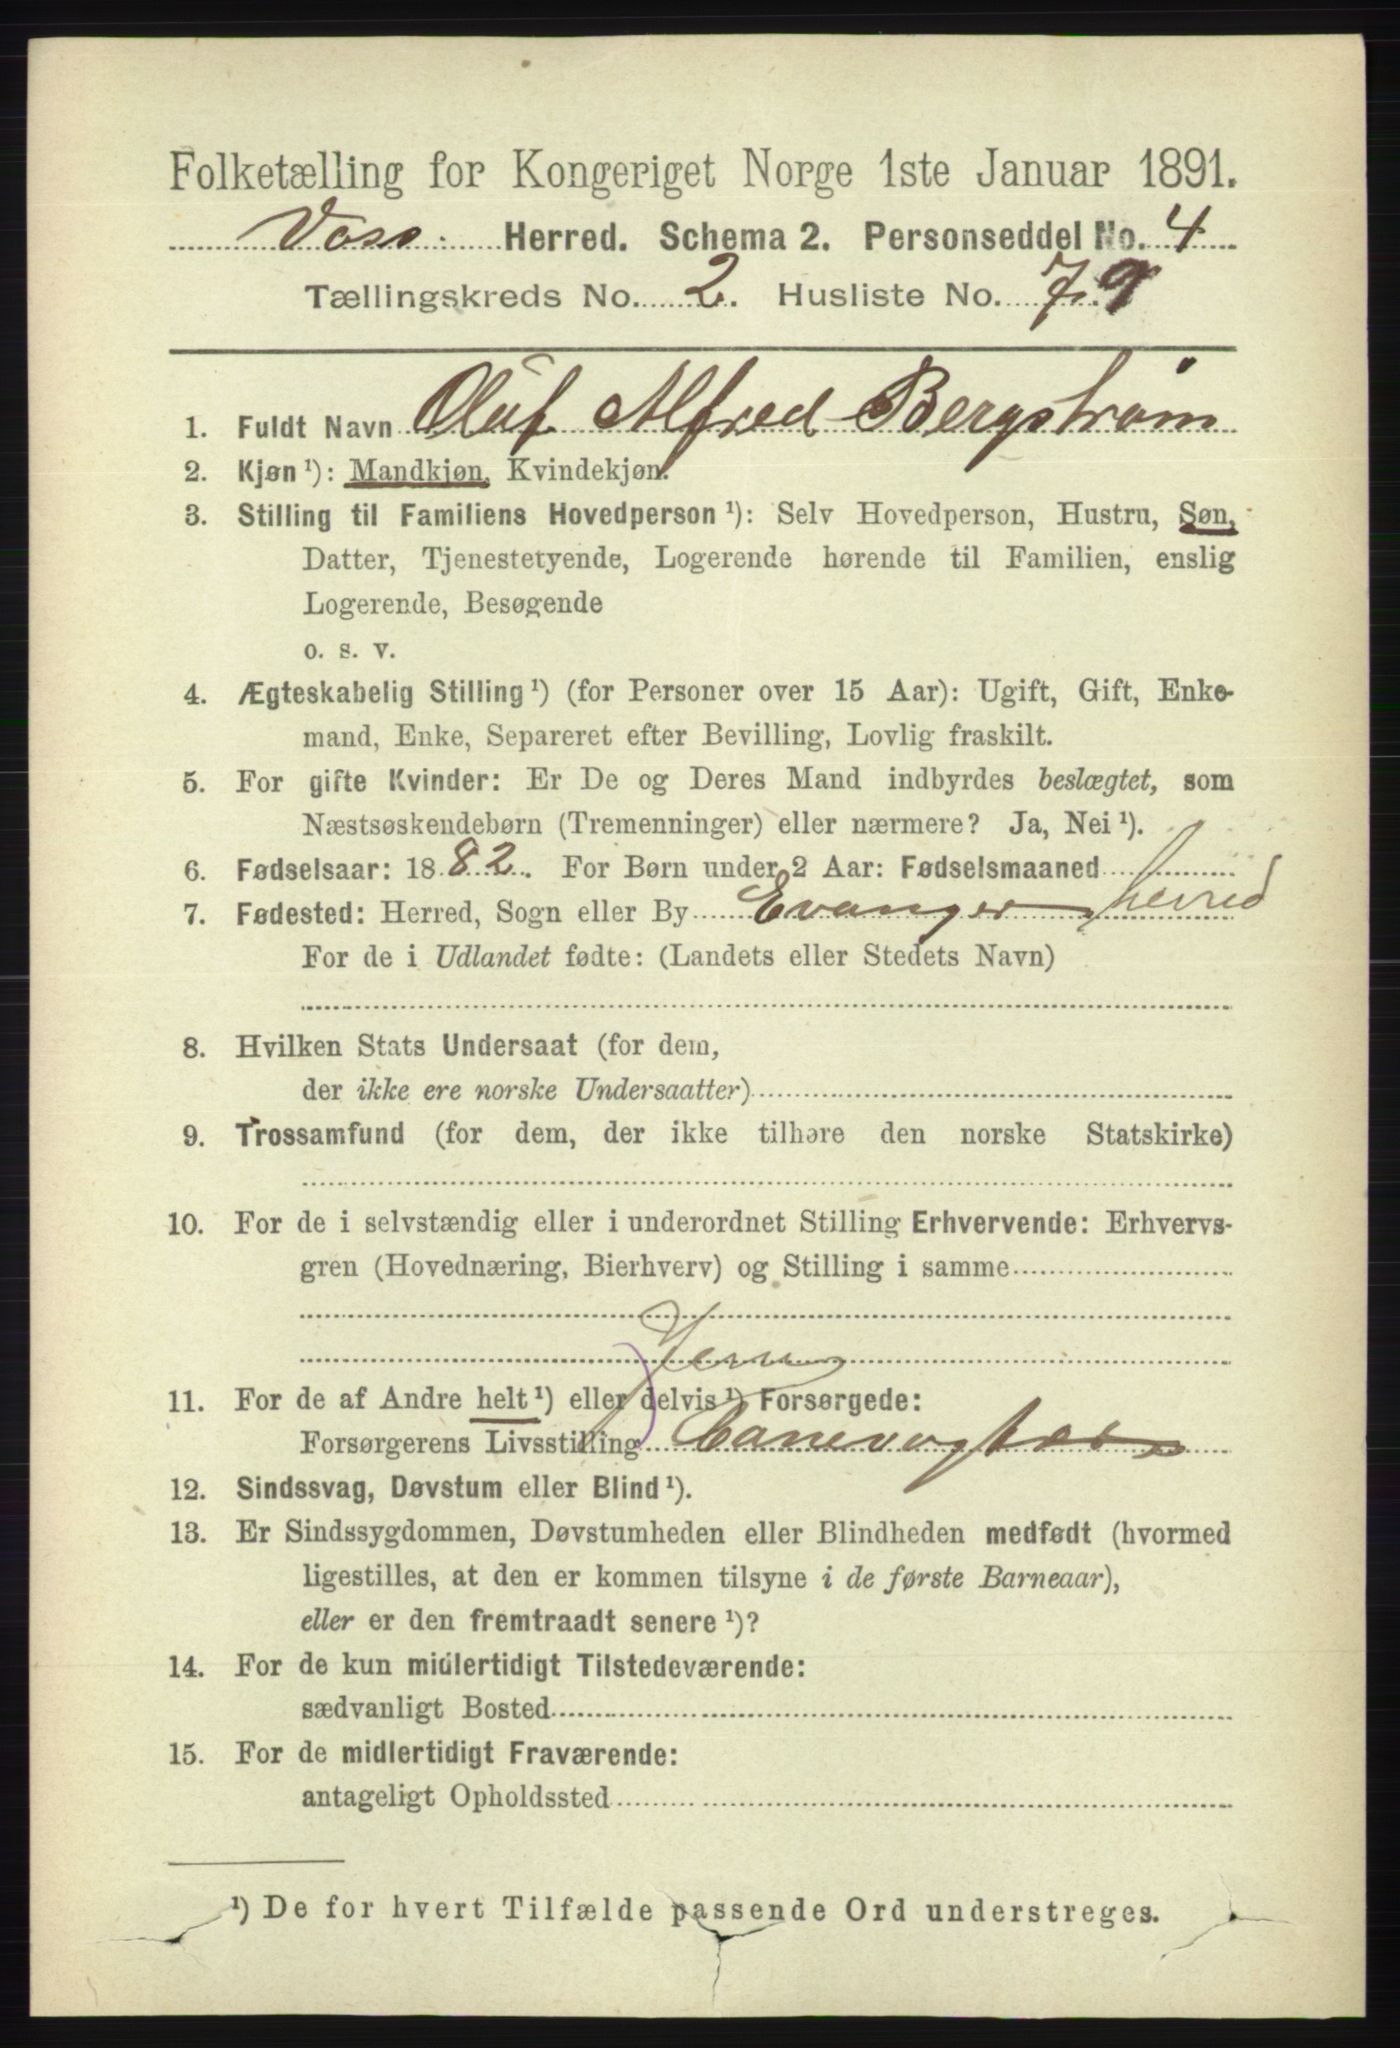 Folketælling for Kongeriget Norge 1ste Januar 1891.
Voss. Herred. Schema 2. Personseddel No. 4
Tællingskreds No. 2. Husliste No. 79
1. Fuldt Navn Oluf Alfred Bergstrøm
2. Kjøn ¹): Mandkjøn, Kvindekjøn.
3. Stilling til Familiens Hovedperson ¹): Selv Hovedperson, Hustru, Søn,
Datter, Tjenestetyende, Logerende hørende til Familien, enslig
Logerende, Besøgende
o. s. v.
4. Ægteskabelig Stilling ¹) (for Personer over 15 Aar): Ugift, Gift, Enke-
mand, Enke, Separeret efter Bevilling, Lovlig fraskilt.
5. For gifte Kvinder: Er De og Deres Mand indbyrdes beslægtet, som
Næstsøskendebørn (Tremenninger) eller nærmere? Ja, Nei ¹).
6. Fødselsaar: 1882. For Børn under 2 Aar: Fødselsmaaned
7. Fødested: Herred, Sogn eller By Evanger herred
For de i Udlandet fødte: (Landets eller Stedets Navn)
8. Hvilken Stats Undersaat (for dem,
der ikke ere norske Undersaatter)
9. Trossamfund (for dem, der ikke tilhøre den norske Statskirke)
10. For de i selvstændig eller i underordnet Stilling Erhvervende: Erhvervs-
gren (Hovednæring, Bierhverv) og Stilling i samme
Jern
11. For de af Andre helt ¹) eller delvis ¹) Forsørgede:
Forsørgerens Livsstilling Banevogter
12. Sindssvag, Døvstum eller Blind ¹).
13. Er Sindssygdommen, Døvstumheden eller Blindheden medfødt (hvormed
ligestilles, at den er kommen tilsyne i de første Barneaar),
eller er den fremtraadt senere ¹)?
14. For de kun midlertidigt Tilstedeværende:
sædvanligt Bosted
15. For de midlertidigt Fraværende:
antageligt Opholdssted
¹) De for hvert Tilfælde passende Ord understreges.